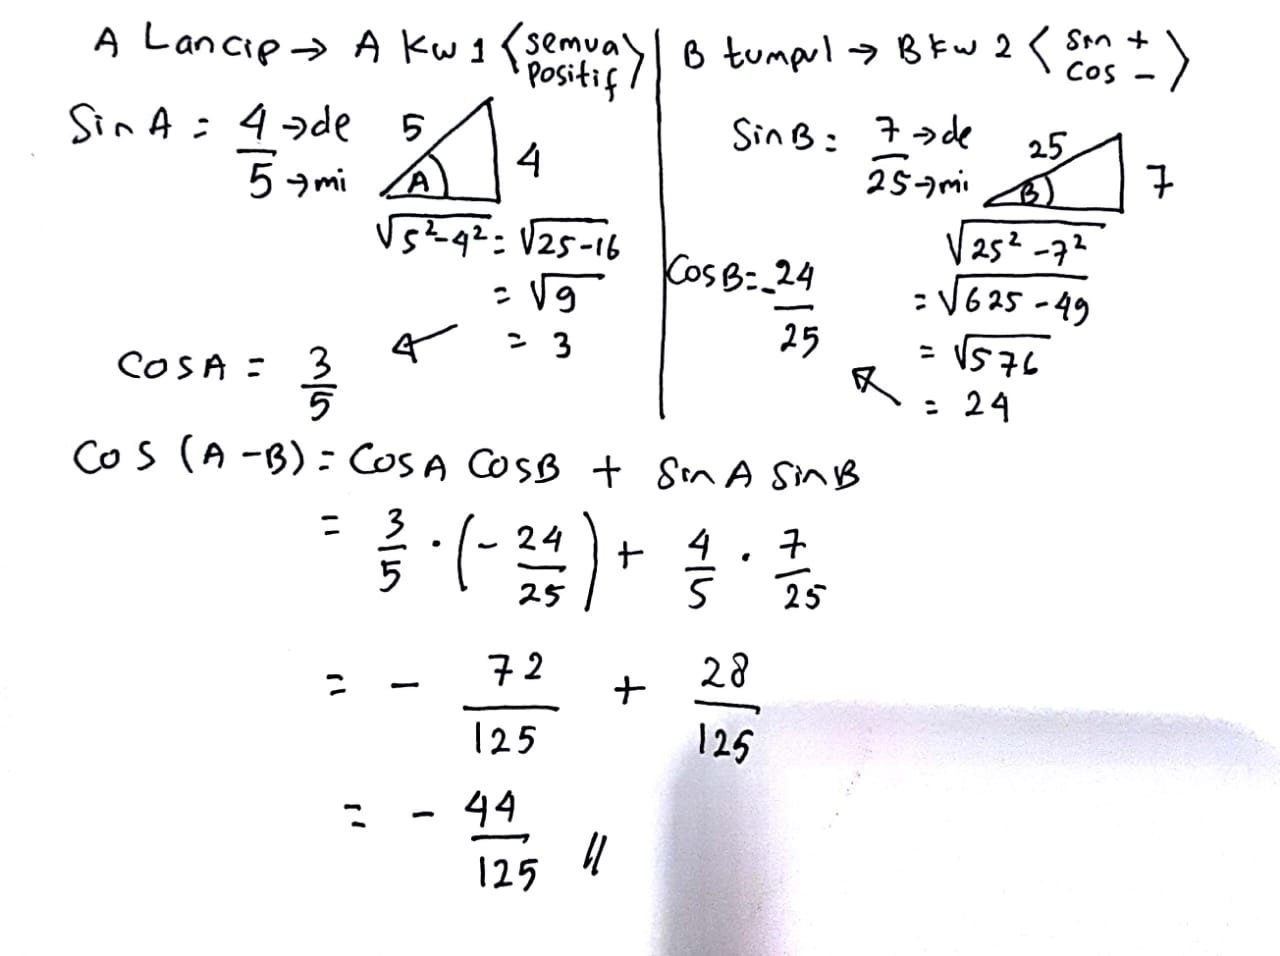 A Lancip → A Kw 1 < semua positif >
Sin A = 4/5 → de → mi
5 4 A
√5²-4² = √25-16
= √9
= 3
Cos A = 3/5
B tumpul → B kw 2 < Sin + Cos - >
Sin B = 7/25 → de → mi
25 7 B
√25² - 7²
= √625 - 49
= √576
= 24
Cos B = -24/25
Cos (A - B) = Cos A Cos B + Sin A Sin B
= 3/5 · (- 24/25) + 4/5 · 7/25
= - 72/125 + 28/125
= - 44/125 //